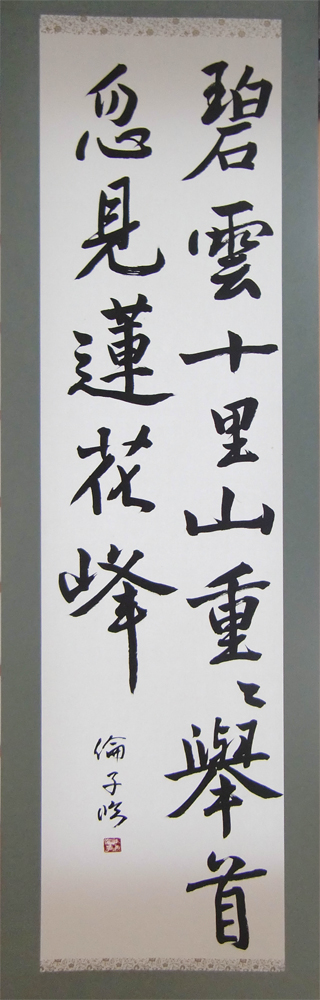 碧雲十里山重〻擧首
忽見蓮花峰
倫子臨